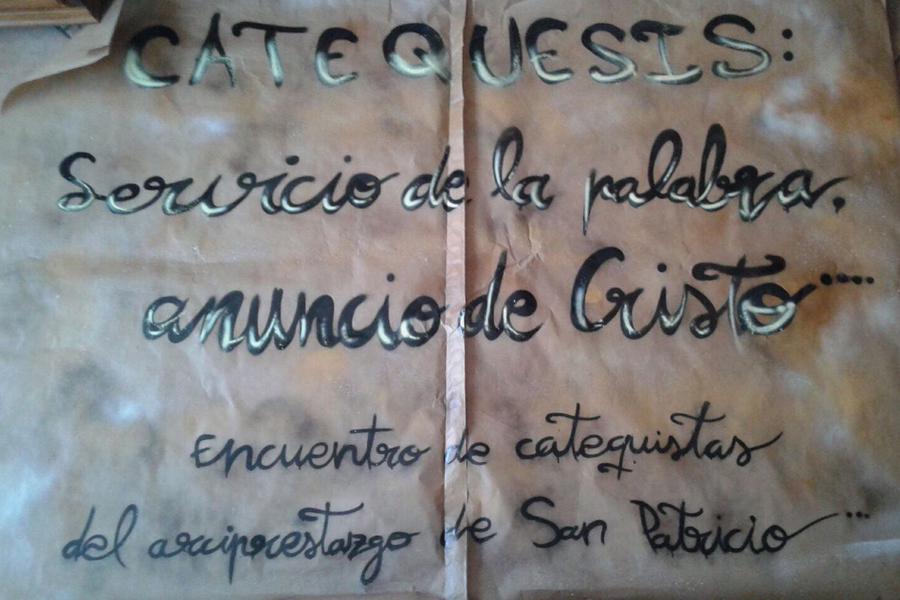 CATEQUESIS:
Servicio de la palabra,
anuncio de Cristo....
Encuentro de catequistas
del arciprestazgo de San Patricio...